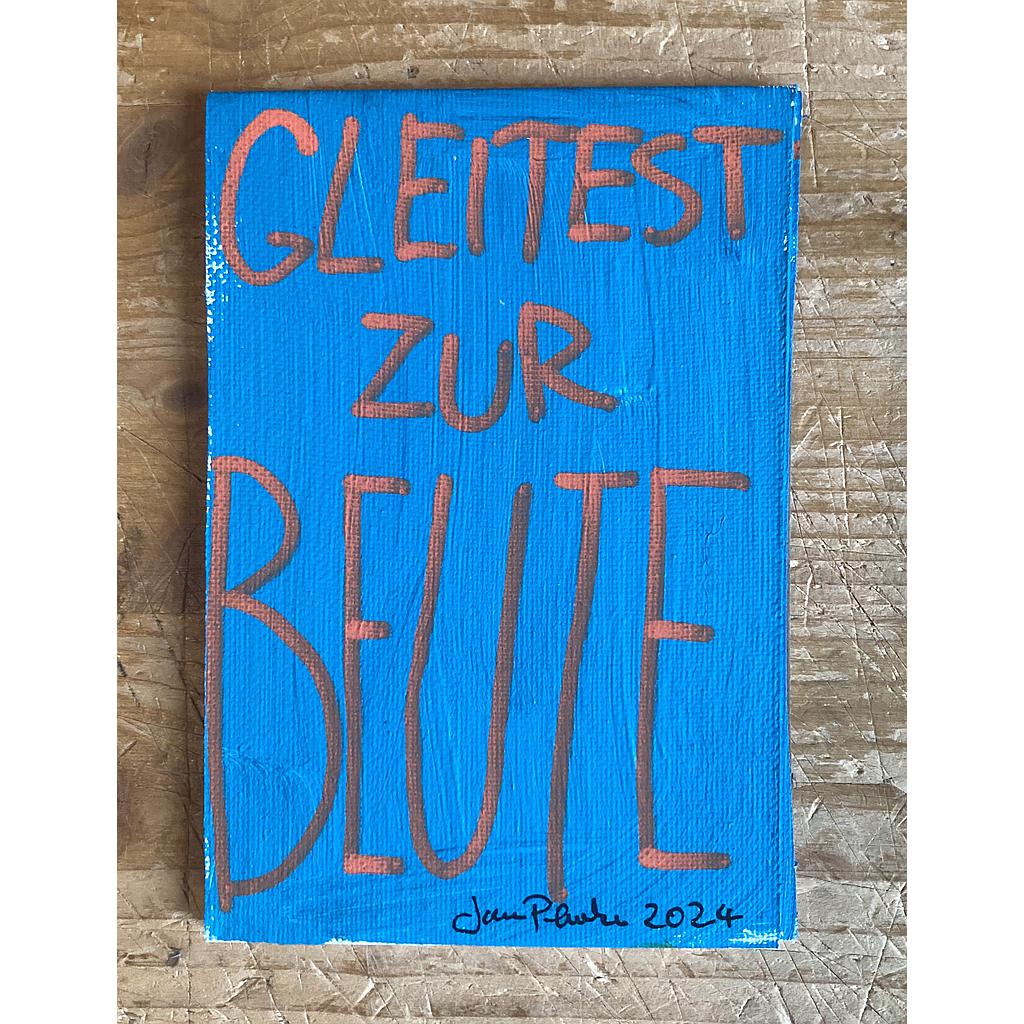 GLEITEST
ZUR
BEUTE
Jan 2024